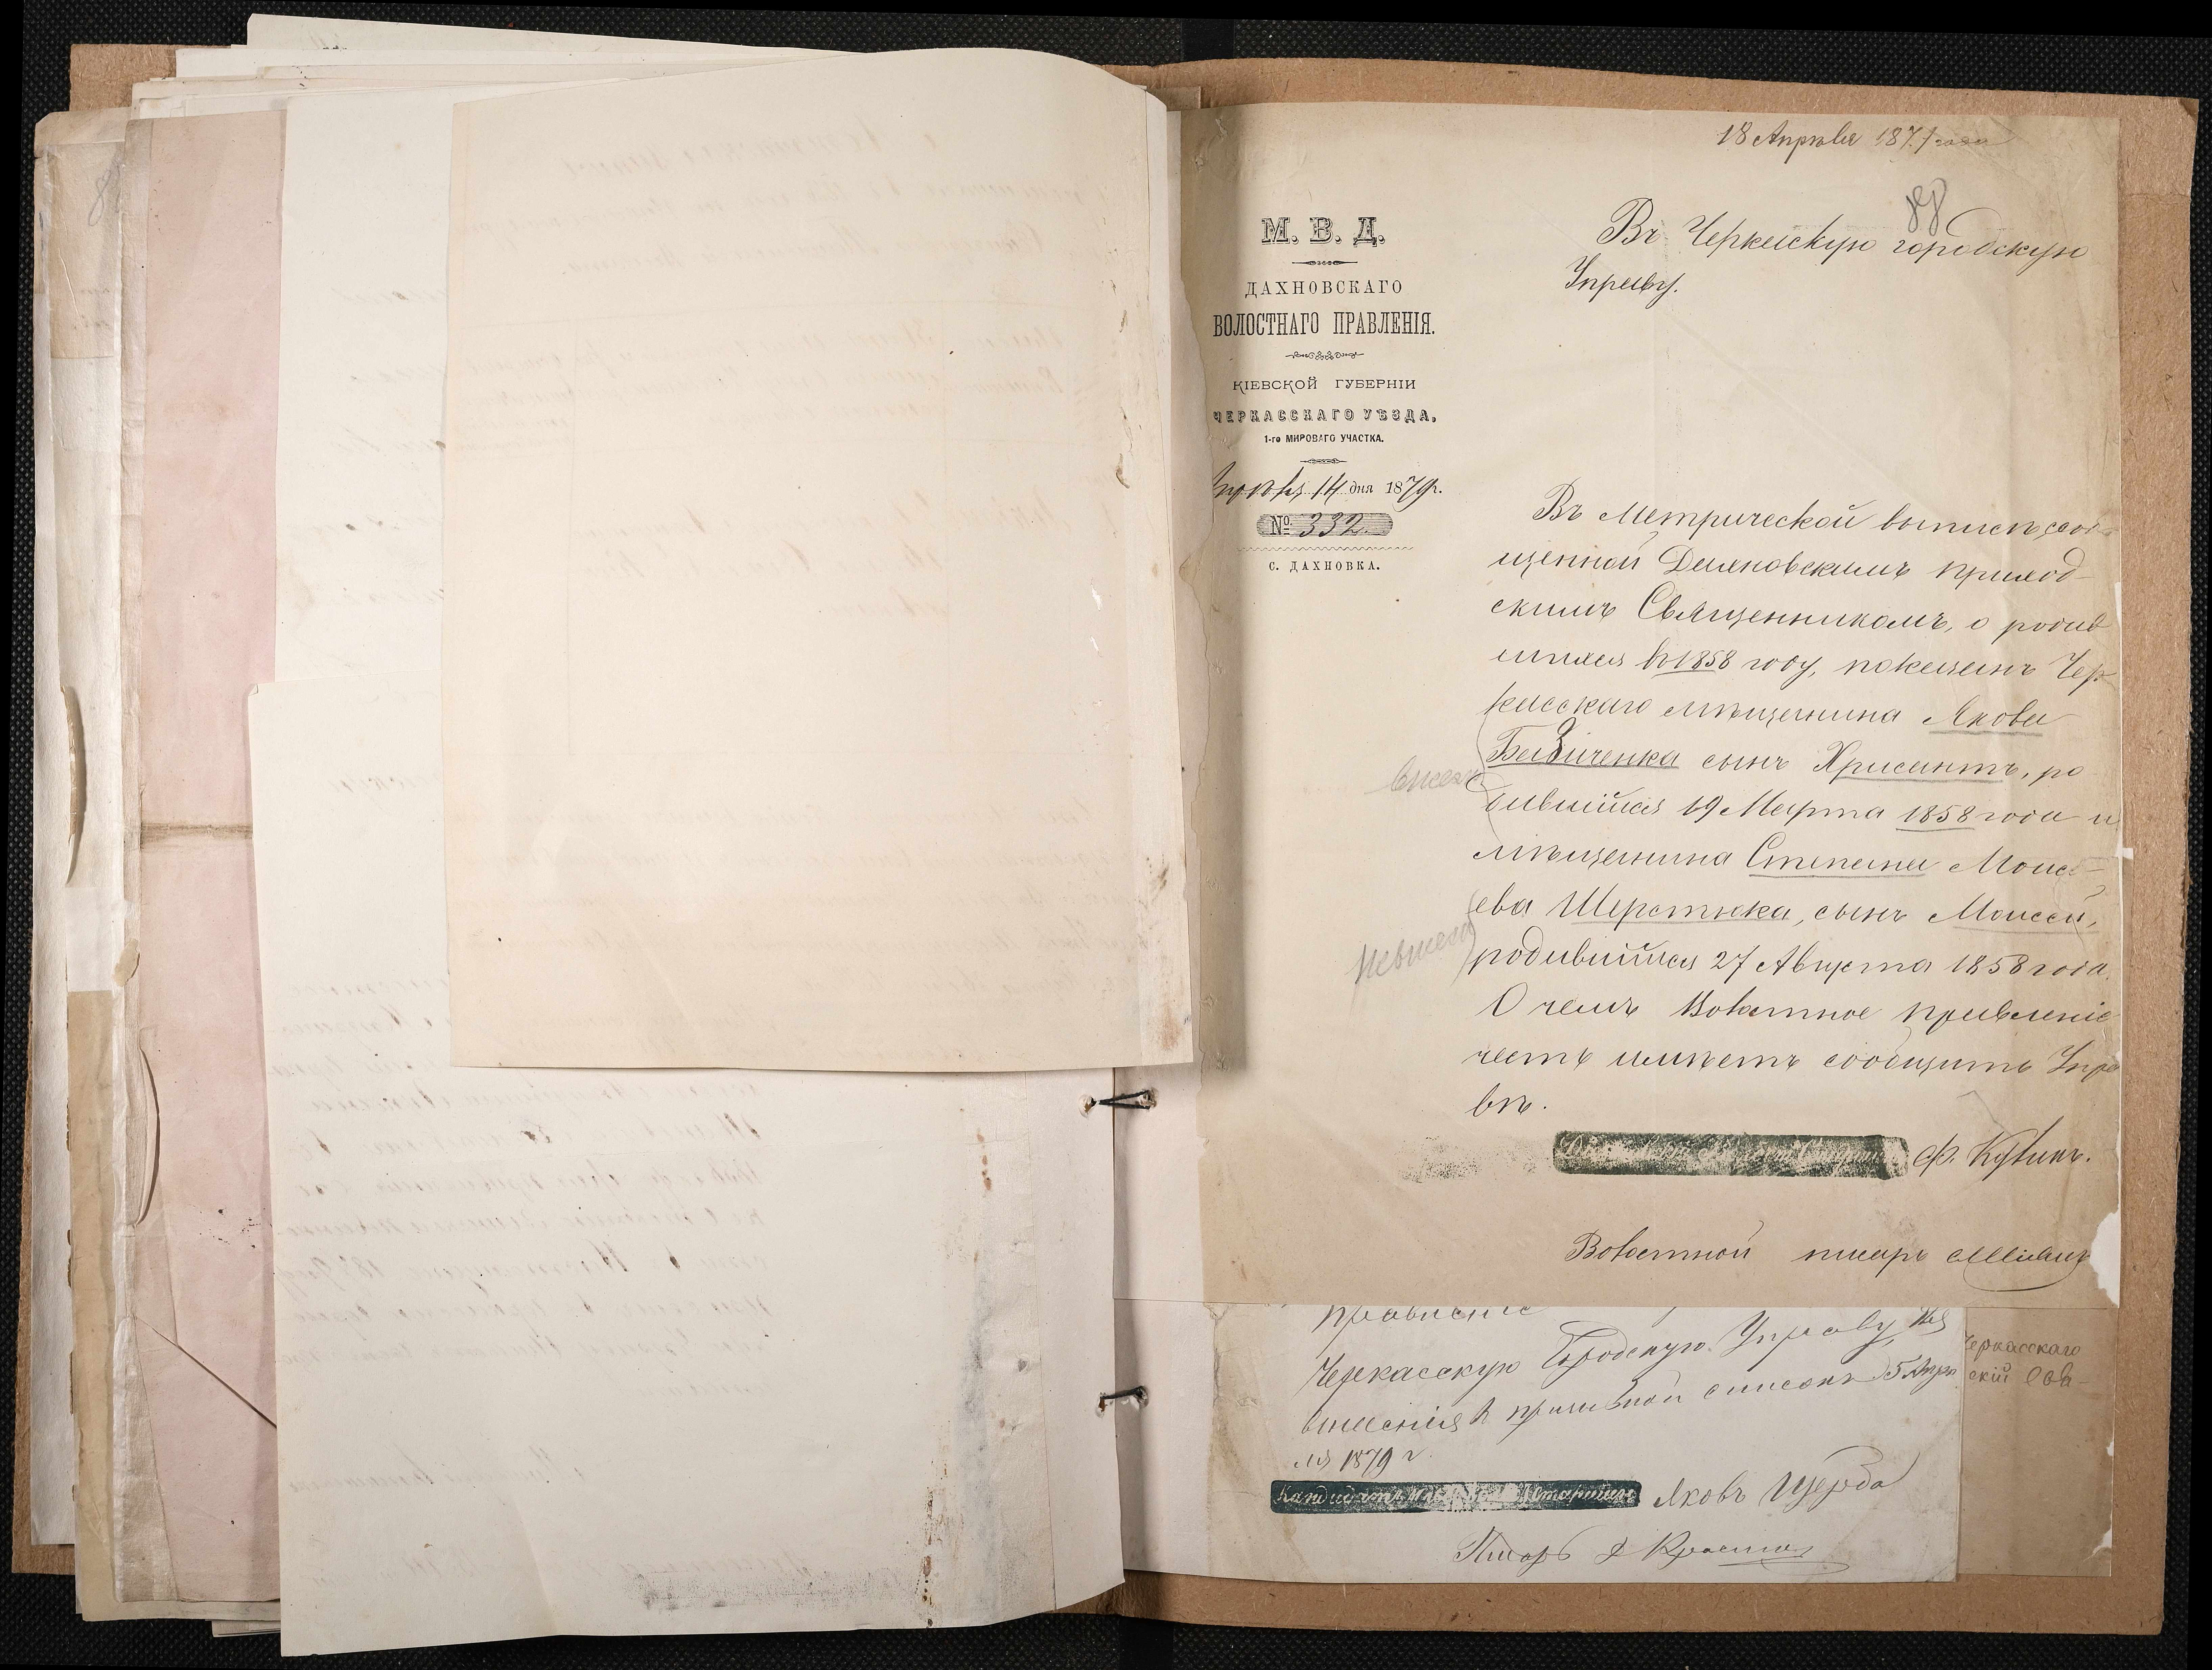 18 Апрѣля 187 года
88
М. В. Д.
ДАХНОВСКАГО
ВОЛОСТНАГО ПРАВЛЕНІЯ.
КІЕВСКОЙ ГУБЕРНІИ
ЧЕРКАССКАГО УѢЗДА,
1-го МИРОВАГО УЧАСТКА.
Апрѣля 14 дня 1879 г.
№ 332.
С. ДАХНОВКА.
Въ Черкасскую городскую
Управу.
Въ Метрической выпискѣ, сооб-
щенной Дахновскимъ приход-
скимъ Священникомъ, о родив
шихся въ 1858 году, показанъ Чер
касскаго мѣщанина Якова
Бабиченка сынъ Хрисантъ, ро
дившійся 19 Марта 1858 года и
мѣщанина Степана Моисѣ-
ева Шерстюка, сынъ Моисей,
родившійся 27 Августа 1858 года.
О чемъ Волостное правленіе
честь имѣетъ сообщить Упра
вѣ.
Волостной писарь
правленіе
Черкасскую Городскую Управу, для
внесенія в призывной списокъ 15 Апрѣ
ля 1879 г.
Кандидатъ Старшины Яковъ Щерба
Писарь
Черкасскаго